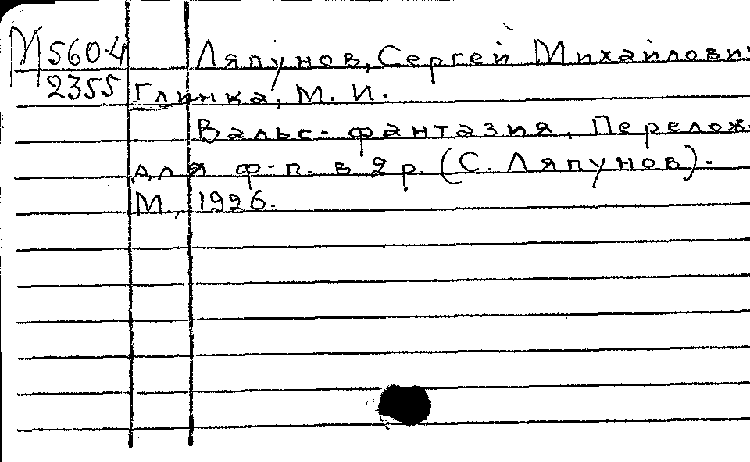 М 560-4 Ляпунов, Сергей Михайлович
2355 Глинка, М. И.
Вальс-фантазия. Перелож.
для ф-п. в 2 р. (С. Ляпунов).
М., 1926.